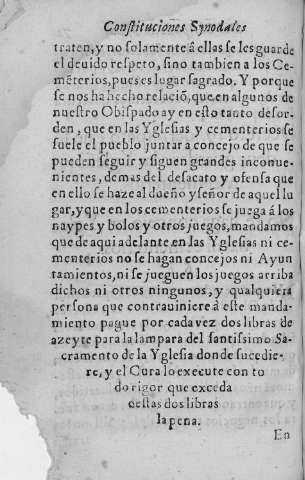 Constituciones Synodales
traten, y no solamente â ellas se les guarde
el deuido respeto, sino tambien a los Ce-
mẽterios, pues es lugar sagrado. Y porque
se nos ha hecho relaciõ, que en algunos de
nuestro Obispado ay en esto tanto desor-
den, que en las Yglesias y cementerios se
suele el pueblo juntar a concejo de que se
pueden seguir y siguen grandes inconue-
nientes, demas del desacato y ofensa que
en ello se haze al dueño y señor de aquel lu
gar, y que en los cementerios se juega á los
naypes y bolos y otros juegos, mandamos
que de aqui adelante en las Yglesias ni ce-
menterios no se hagan concejos ni Ayun
tamientos, ni se jueguen los juegos arriba
dichos ni otros ningunos, y qualquiera
persona que contrauiniere à este manda-
miento pague por cada vez dos libras de
azeyte para la lampara del santissimo Sa-
cramento de la Yglesia donde sucedie-
re, y el Cura lo execute con to
do rigor que exceda
destas dos libras
la pena.
En